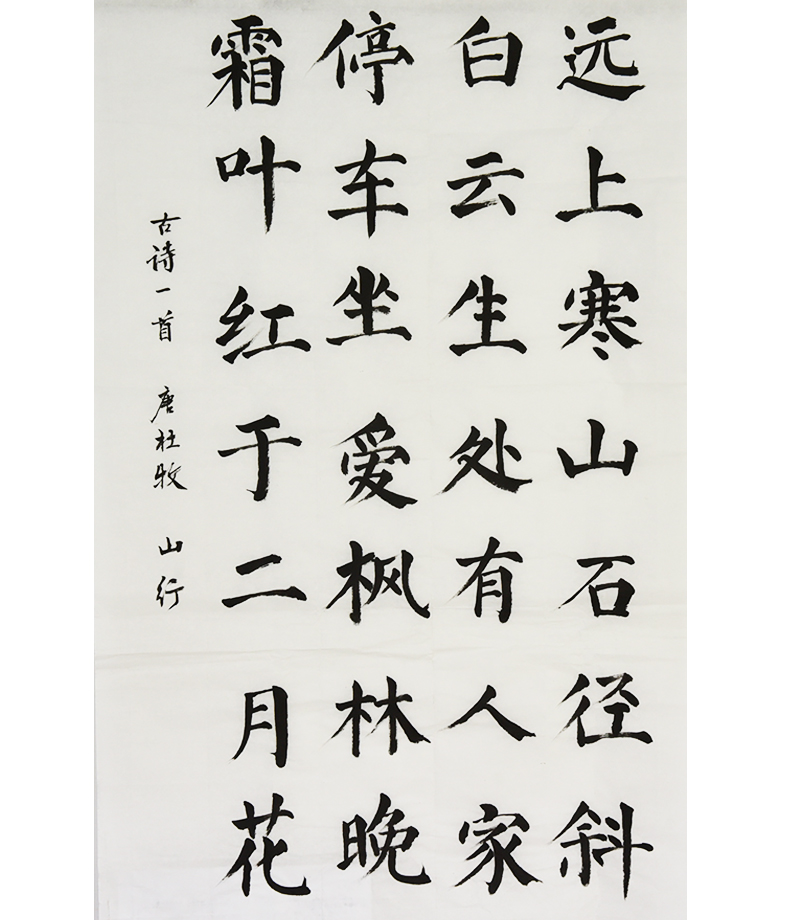 远上寒山石径斜
白云生处有人家
停车坐爱枫林晚
霜叶红于二月花
古诗一首 唐杜牧 山行